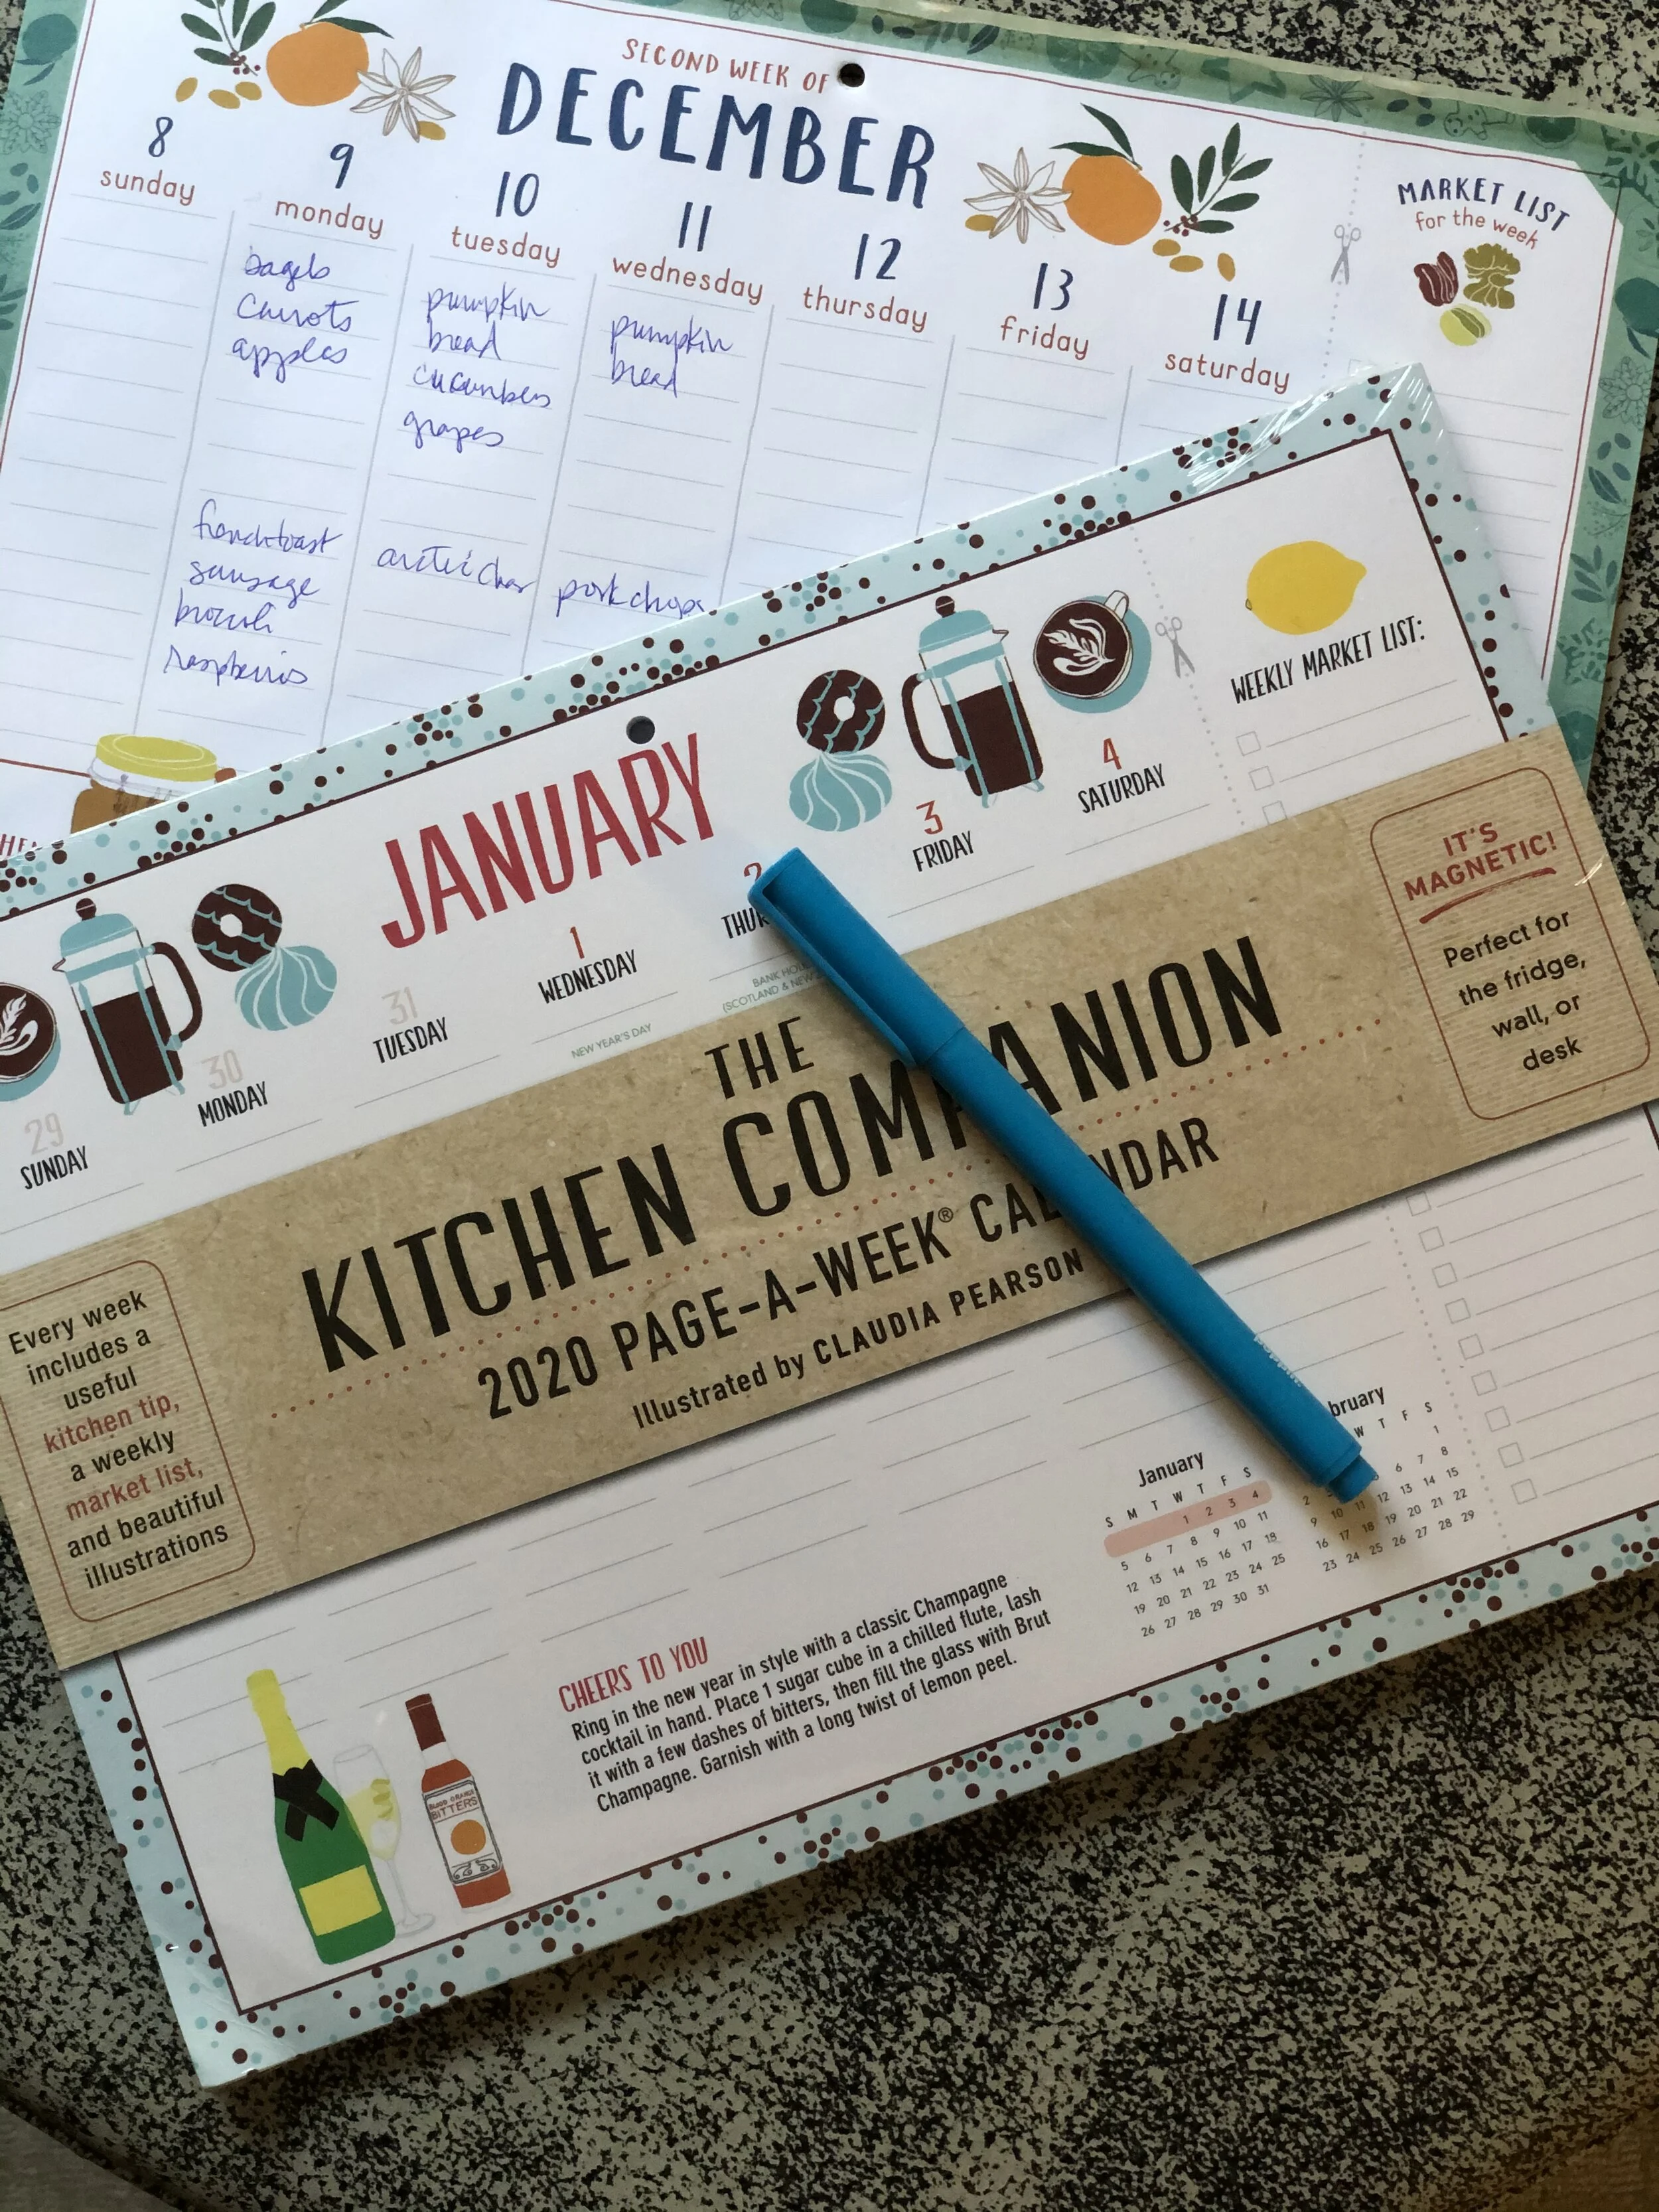 SECOND WEEK OF
DECEMBER
8
sunday
9
monday
10
tuesday
11
wednesday
12
thursday
13
friday
14
saturday
MARKET LIST
for the week
bagels
carrots
apples
pumpkin
bread
cucumbers
grapes
pumpkin
bread
french toast
sausage
broccoli
raspberries
arctic char
pork chops
JANUARY
29
SUNDAY
30
MONDAY
31
TUESDAY
1
WEDNESDAY
NEW YEAR'S DAY
2
THUR
BANK HOL
(SCOTLAND & NEW
3
FRIDAY
4
SATURDAY
WEEKLY MARKET LIST:
THE
KITCHEN COMPANION
2020 PAGE-A-WEEK® CALENDAR
Illustrated by CLAUDIA PEARSON
IT'S
MAGNETIC!
Perfect for
the fridge,
wall, or
desk
Every week
includes a
useful
kitchen tip,
a weekly
market list,
and beautiful
illustrations
CHEERS TO YOU
Ring in the new year in style with a classic Champagne
cocktail in hand. Place 1 sugar cube in a chilled flute, lash
it with a few dashes of bitters, then fill the glass with Brut
Champagne. Garnish with a long twist of lemon peel.
BLOOD ORANGE
BITTERS
January
S M T W T F S
1 2 3 4
5 6 7 8 9 10 11
12 13 14 15 16 17 18
19 20 21 22 23 24 25
26 27 28 29 30 31
bruary
W T F S
1
6 7 8
9 10 11 12 13 14 15
16 17 18 19 20 21 22
23 24 25 26 27 28 29